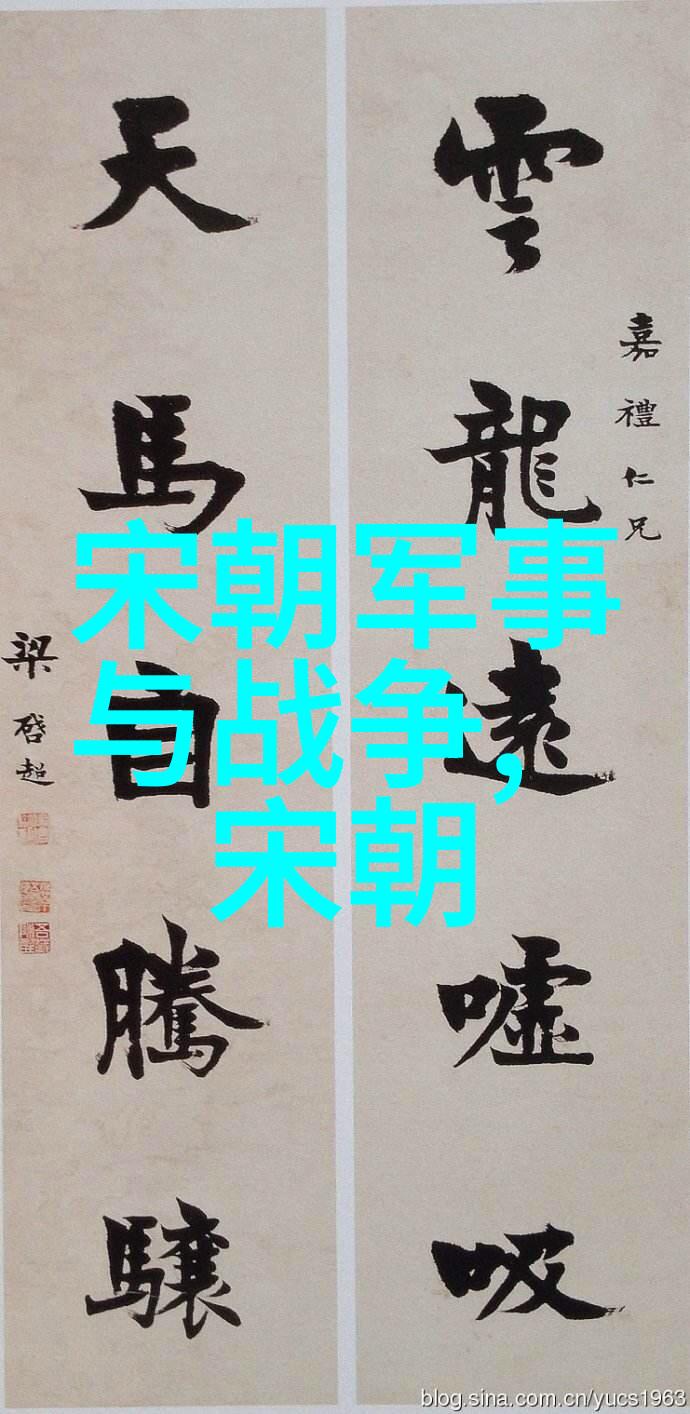 雲龍遠噓吸
嘉禮仁兄
天馬自騰驤
梁啓超
宋朝军事
与战争,
宋朝
blog.sina.com.cn/yucs1963